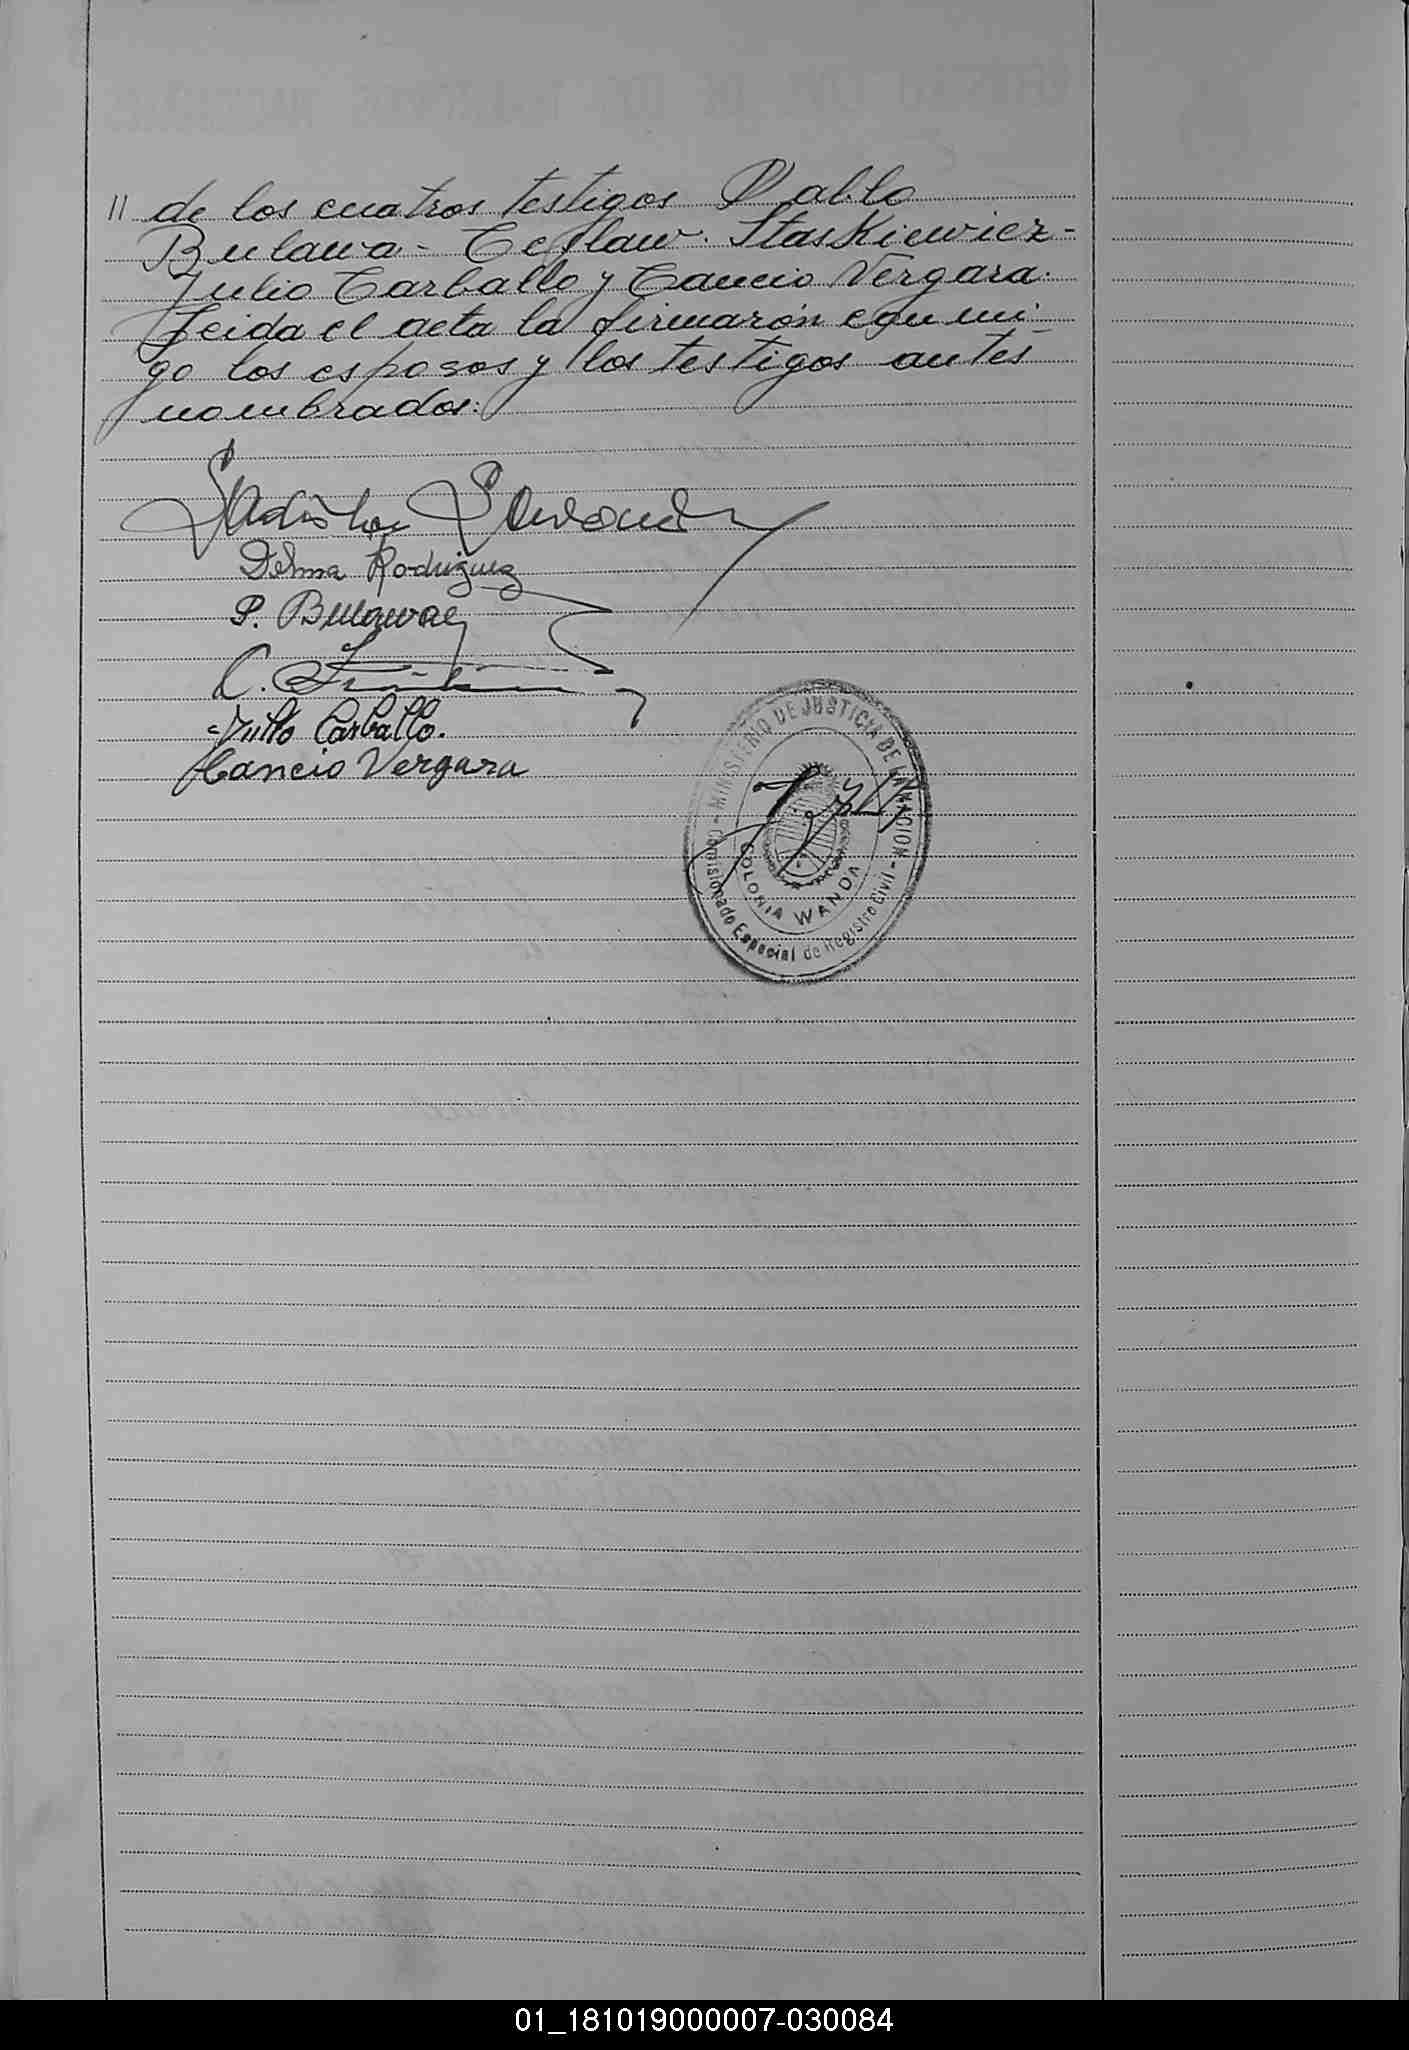 11 de los cuatros testigos Pablo
Bulawa - Ceslaw. Staskiewicz -
Julio Carballo y Cancio Vergara.
Leida el acta la firmarón conmi-
go los esposos y los testigos antes
nombrados:
Delma Rodriguez
P. Bulawa
C.
Julio Carballo.
Cancio Vergara
- MINISTERIO DE JUSTICIA DE LA NACION -
COLONIA WANDA
Comisionado Especial de Registro Civil
01_181019000007-030084